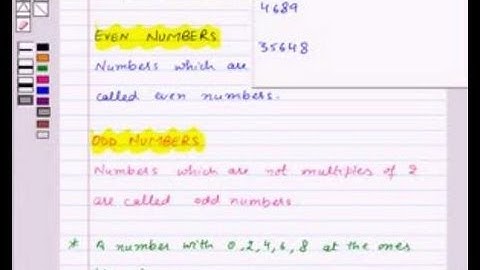 4689
35648
EVEN NUMBERS
Numbers which are
called even numbers.
ODD NUMBERS
Numbers which are not multiples of 2
are called odd numbers
* A number with 0,2,4,6,8 at the ones